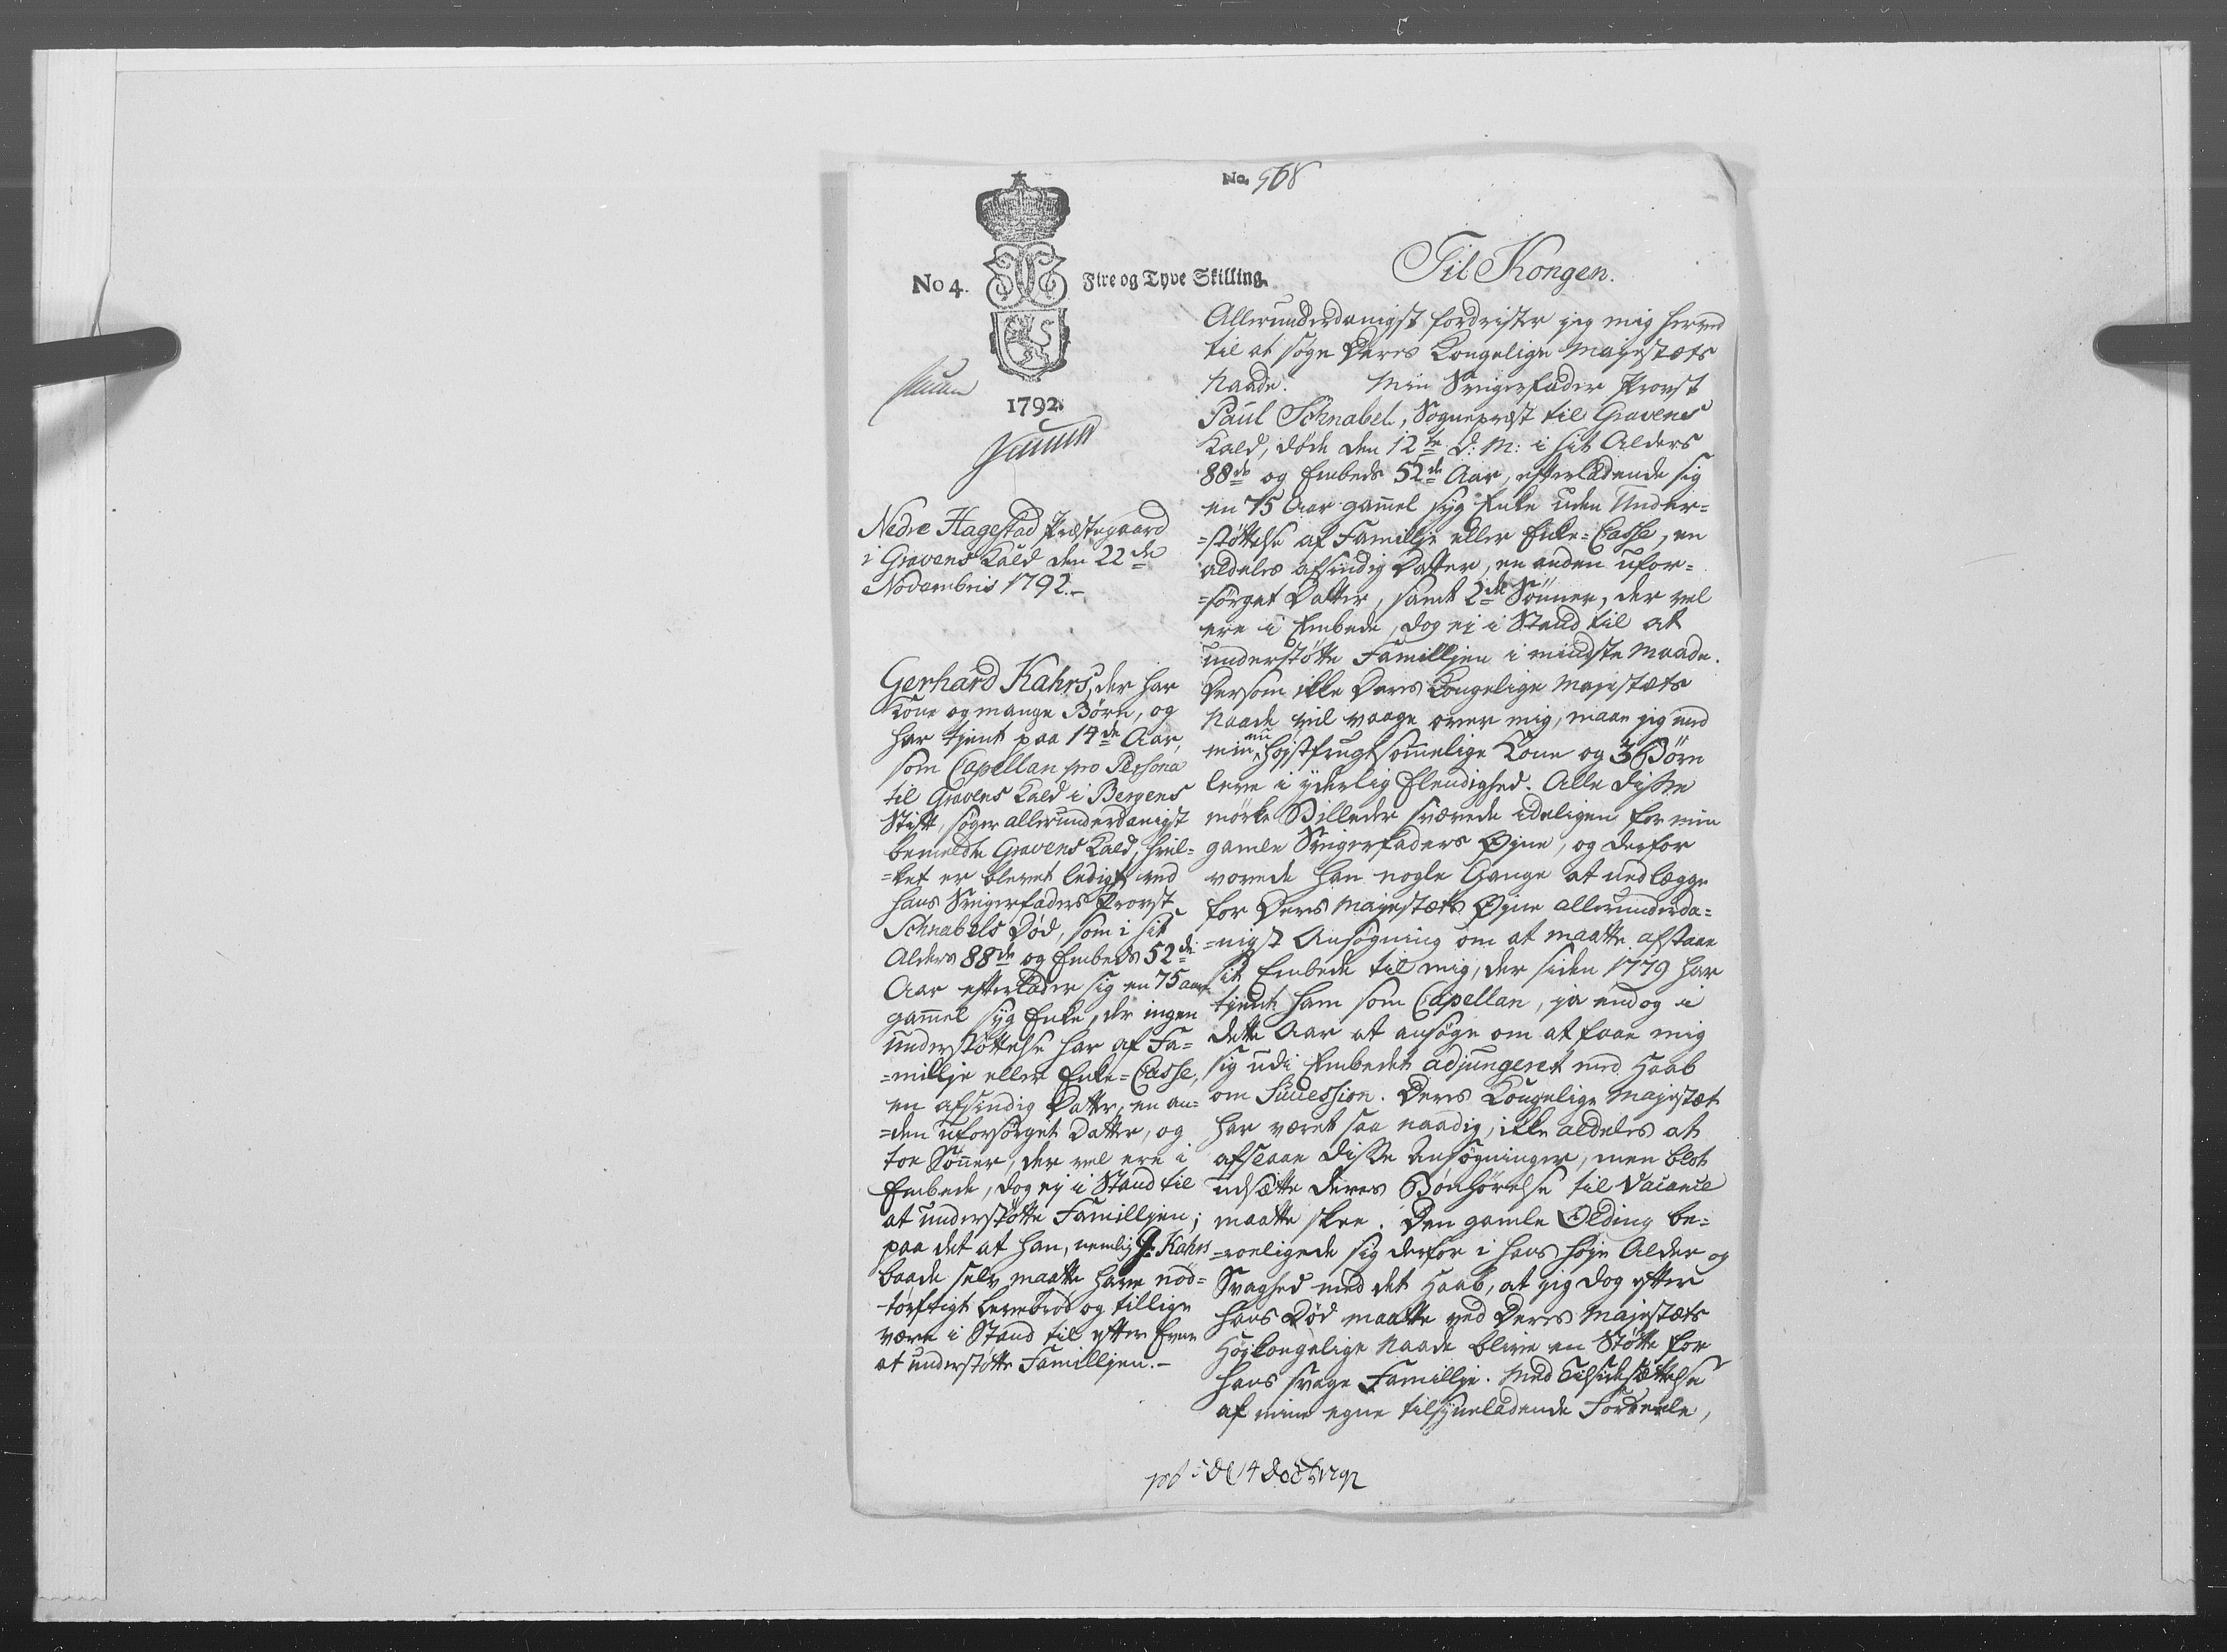 No. 568
No 4.
Fire og Tyve Skilling.
1792.
Til Kongen.
Allerunderdanigst fordrister jeg mig herved
til at søge Deres Kongelige Majestæts
Naade. Min Svigerfader Provst
Paul Schnabel, Sognepræst til Gravens
Kald, døde den 12te d: M: i sit Alders
88de og Embeds 52de Aar, efterladende sig
en 75 Aar gamel syg Enke uden Under=
=støttelse af Familje eller Enke=Casse, en
aldeles afsindig Datter, en anden ufor=
=sørget Datter, samt 2de Sönner, der vel
ere i Embede, dog ej i Stand til at
understøtte Familljen i mindste Maade.
Dersom ikke Deres Kongelige Majestæts
Naade vil vaage over mig, maae jeg med
min nu højstfrugtsommelige Kone og 3 Børn
leve i yderlig Elendighed. Alle disse
mørke Billeder svævede ideligen for min
gamle Svigerfaders Øjne, og derfor
vovede han nogle Gange at nedlægge
for Deres Majestæts Øjne allerunderda=
=nigst Ansøgning om at maatte afstaae
sit Embede til mig, der siden 1779 har
tjent ham som Capellan, ja endog i
dette Aar at ansøge om at faae mig
sig udi Embedet adjungeret med Haab
om Succession. Deres Kongelige Majestæt
har været saa naadig, ikke aldeles at
afslaae disse Ansøgninger, men blot
udsætte deres Bønhørelse til Vacance
maatte skee. Den gamle Olding be=
=roeligede sig derfor i hans høje Alder og
Svaghed med det Haab, at jeg dog efter
hans Død maatte ved Deres Majestæts
Højkongelige Naade blive en Støtte for
hans svage Famillje. Med Tilsidesættelse
af mine egne tilsyneladende Fordeele,
Nedre Hagestad Præstegaard
i Gravens Kald den 22de
Novembris 1792.-
Gerhard Kahrs, der har
Kone og mange Børn, og
har tjent paa 14de Aar,
som Capellan pro Persona
til Gravens Kald i Bergens
Stift, søger allerunderdanigst
bemeldte Gravens Kald, hvil=
=ket er blevet ledigt ved
hans Svigerfaders Provst
Schnabels Død, som i sit
Alders 88de og Embeds 52de
Aar efterlader sig en 75 aar
gamel syg Enke, der ingen
understøttelse har af Fa=
=millje eller Enke=Casse,
en afsindig Datter, en an=
=den uforsørget Datter, og
toe Sönner, der vel ere i
Embede, dog ej i Stand til
at understøtte Familljen;
paa det at han, nemlig G: Kahrs
baade selv maatte have nød=
tørftigt Levebrød og tillige
være i Stand til efter Evne
at understøtte Familljen.-